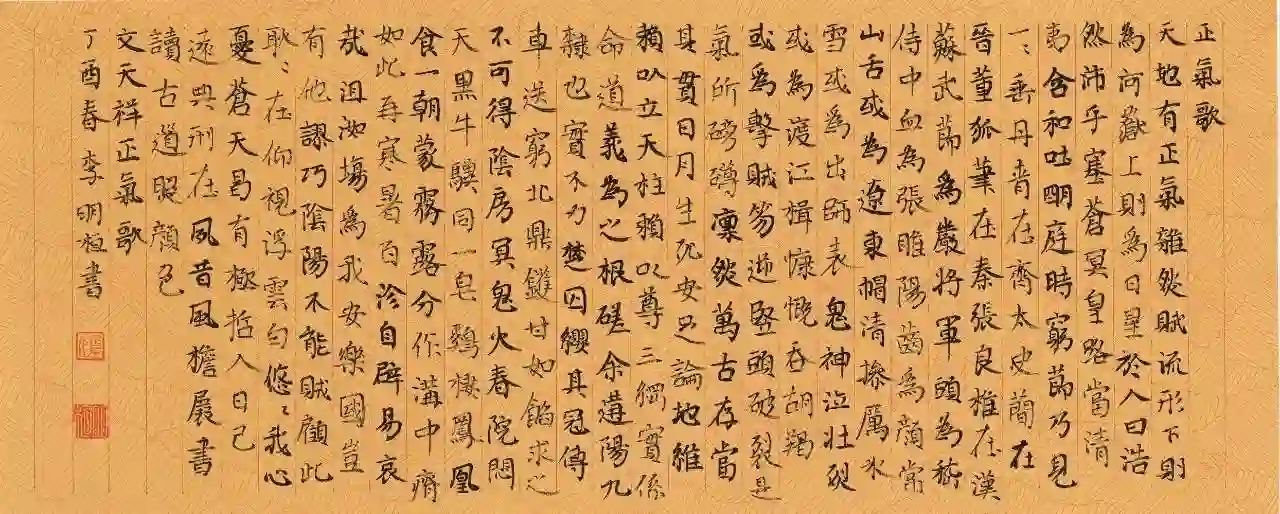 正氣歌
天地有正氣雜然賦流形下則
為河嶽上則為日星於人曰浩
然沛乎塞蒼冥皇路當清
夷含和吐明庭時窮節乃見
一〻垂丹青在齊太史簡在
晉董狐筆在秦張良椎在漢
蘇武節為嚴將軍頭為嵇
侍中血為張睢陽齒為顏常
山舌或為遼東帽清操厲冰
雪或為出師表鬼神泣壯烈
或為渡江楫慷慨吞胡羯
或為擊賊笏逆豎頭破裂是
氣所磅礴凜然萬古存當
其貫日月生死安足論地維
賴以立天柱賴以尊三綱實係
命道義為之根嗟余遘陽九
隸也實不力楚囚纓其冠傳
車送窮北鼎鑊甘如飴求之
不可得陰房冥鬼火春院閟
天黑牛驥同一皂鷄棲鳳凰
食一朝蒙霧露分作溝中瘠
如此再寒暑百沴自辟易哀
哉沮洳場爲我安樂國豈
有他謬巧陰陽不能賊顧此
耿〻在仰視浮雲白悠〻我心
憂蒼天曷有極哲人日已
遠典刑在夙昔風檐展書
讀古道照顏色
文天祥正氣歌
丁酉春 李明書